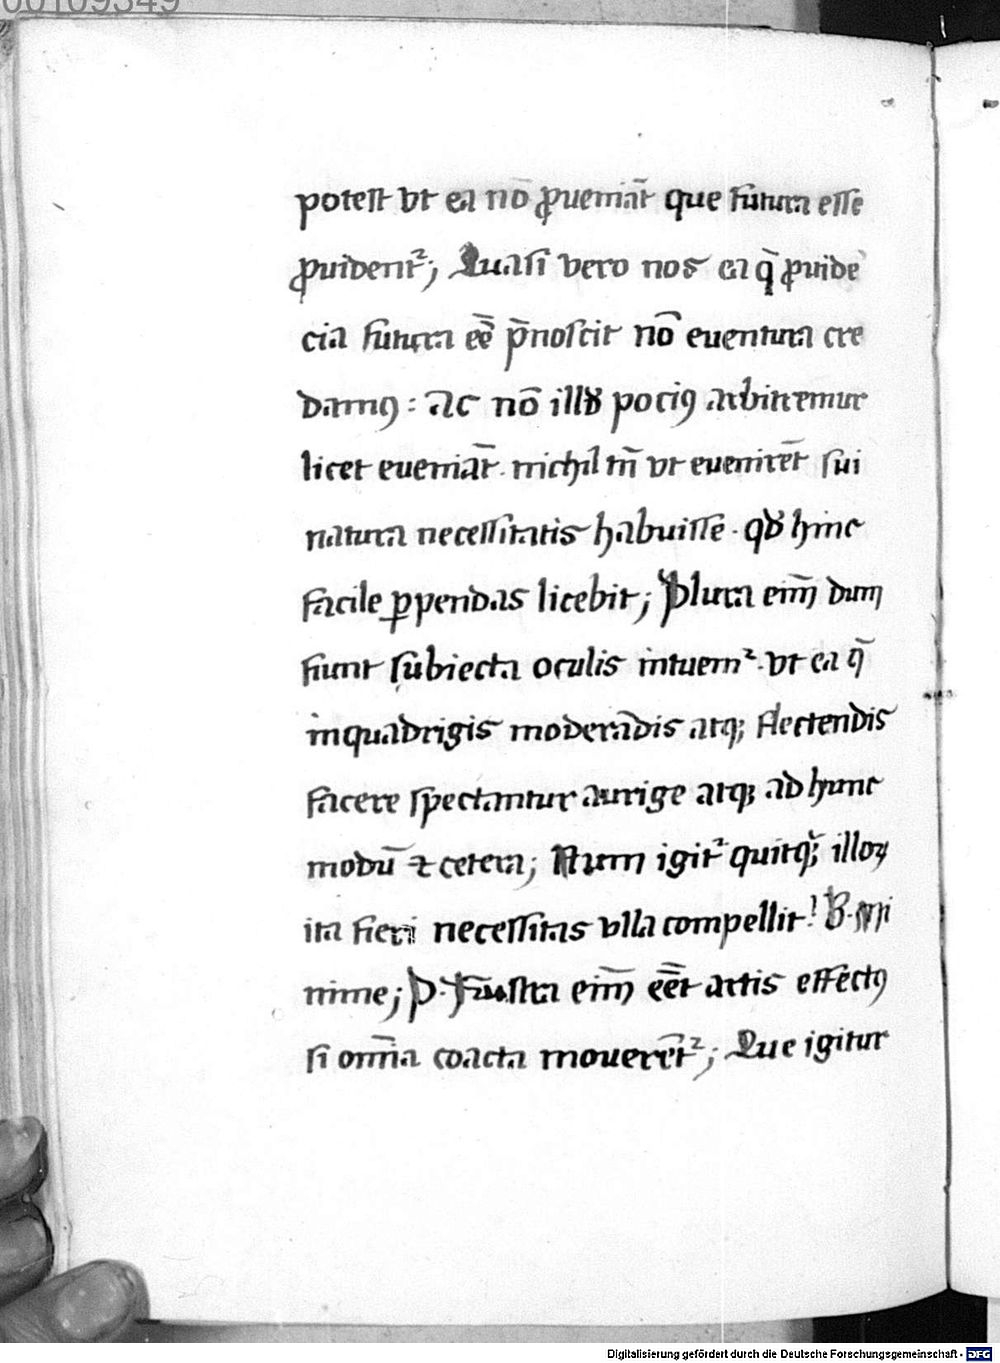 00109349
potest vt ea nō ꝓueniāt que futura esse
ꝓuident᷑; Quasi vero nos ea q̄ ꝓuide
cia futura eē p̄noscit nō euentura cre
damꝰ: ac nō illđ pociꝰ arbitremur
licet eueniāt. nichil tn̄ vt euenirēt sui
natura necessitatis habuisse. qđ hinc
facile ꝑpendas licebit; Plura enī dum
fiunt subiecta oculis intuem᷑. vt ea q̄
inquadrigis moderādis atqꝫ flectendis
facere spectantur aurige atqꝫ ad hunc
modū ⁊ cetera; Num igit᷑ quitqꝫ illoꝝ
ita fieri necessitas vlla compellit? B. Mi
nime; P. Frūstra enī eēt artis effectꝰ
si omīa coacta mouerēt᷑; Que igitur
Digitalisierung gefördert durch die Deutsche Forschungsgemeinschaft - DFG